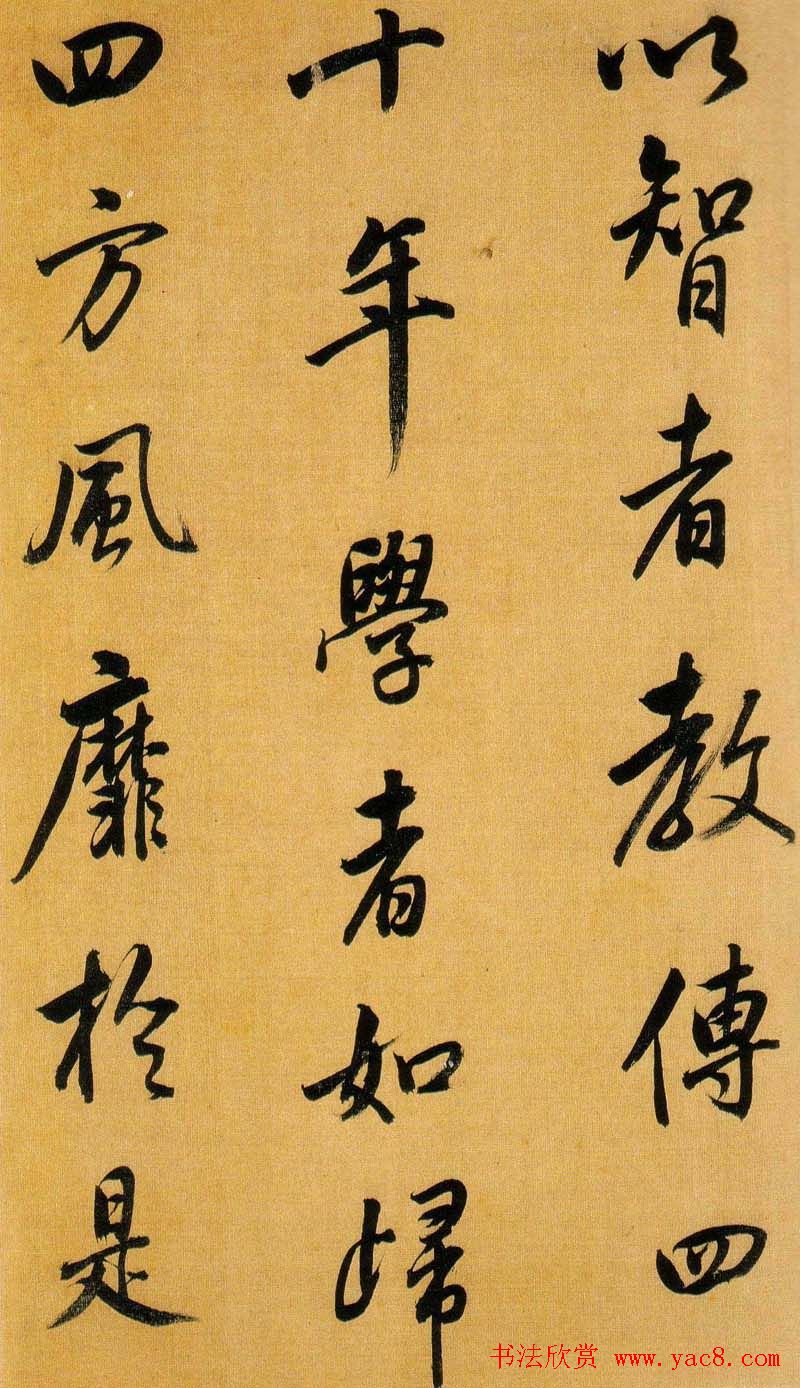 以智者教傳四
十年學者如歸
四方風靡於是
书法欣赏 www.yac8.com